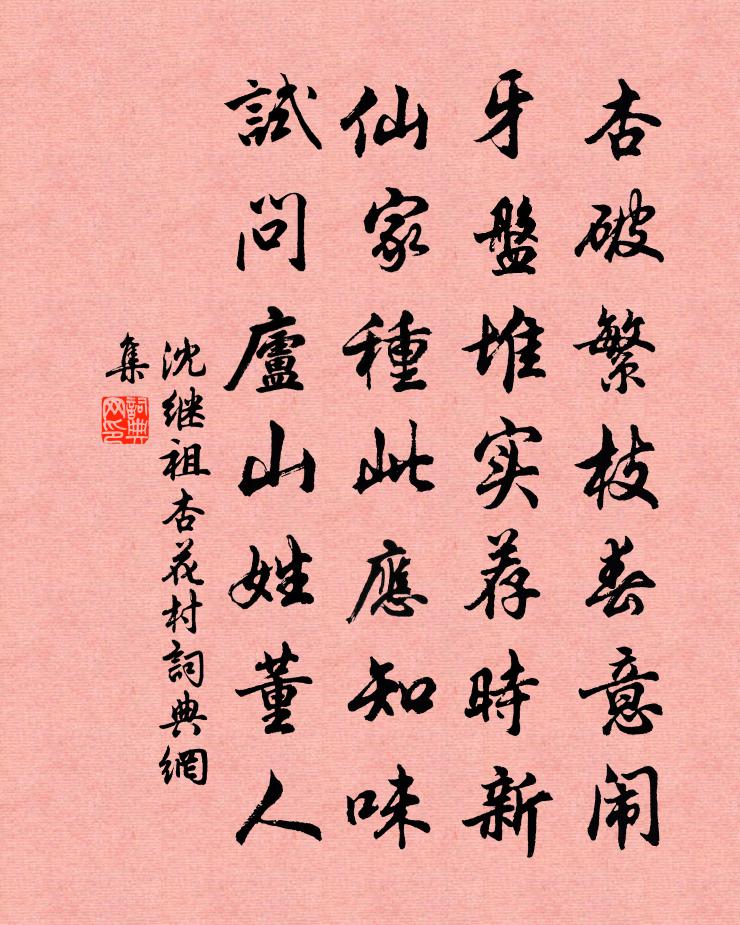 杏破繁枝春意闹
牙盤堆实荐時新
仙家種此應知味
試問廬山姓董人
沈继祖杏花村詞典網
集
詞典
网印